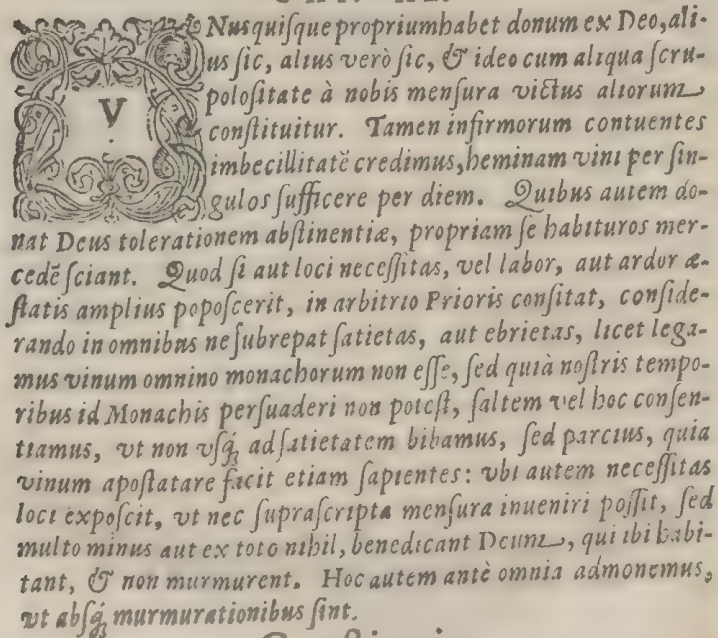 VNusquiſque propriumhabet donum ex Deo,ali-
us ſic, alius verò ſic, & ideo cum aliqua ſcru-
poloſitate à nobis menſura victus aliorum
conſtituitur. Tamen infirmorum contuentes
imbecillitatē credimus,heminam vini per ſin-
gulos ſufficere per diem. Quibus autem do-
nat Deus tolerationem abſtinentiæ, propriam ſe habituros mer-
cedē ſciant. Quod ſi aut loci neceſſitas, vel labor, aut ardor æ-
ſtatis amplius popoſcerit, in arbitrio Prioris conſitat, conſide-
rando in omnibus ne ſubrepat ſatietas, aut ebrietas, licet lega-
mus vinum omnino monachorum non eſſe, ſed quià noſtris tempo-
ribus id Monachis perſuaderi non poteſt, ſaltem vel hoc conſen-
tiamus, vt non vſq́; ad ſatietatem bibamus, ſed parcius, quia
vinum apoſtatare facit etiam ſapientes: vbi autem neceſſitas
loci expoſcit, vt nec ſupraſcripta menſura inueniri poſſit, ſed
multo minus aut ex toto nihil, benedicant Deum, qui ibi habi-
tant, & non murmurent. Hoc autem antè omnia admonemus,
vt abſq́; murmurationibus ſint.